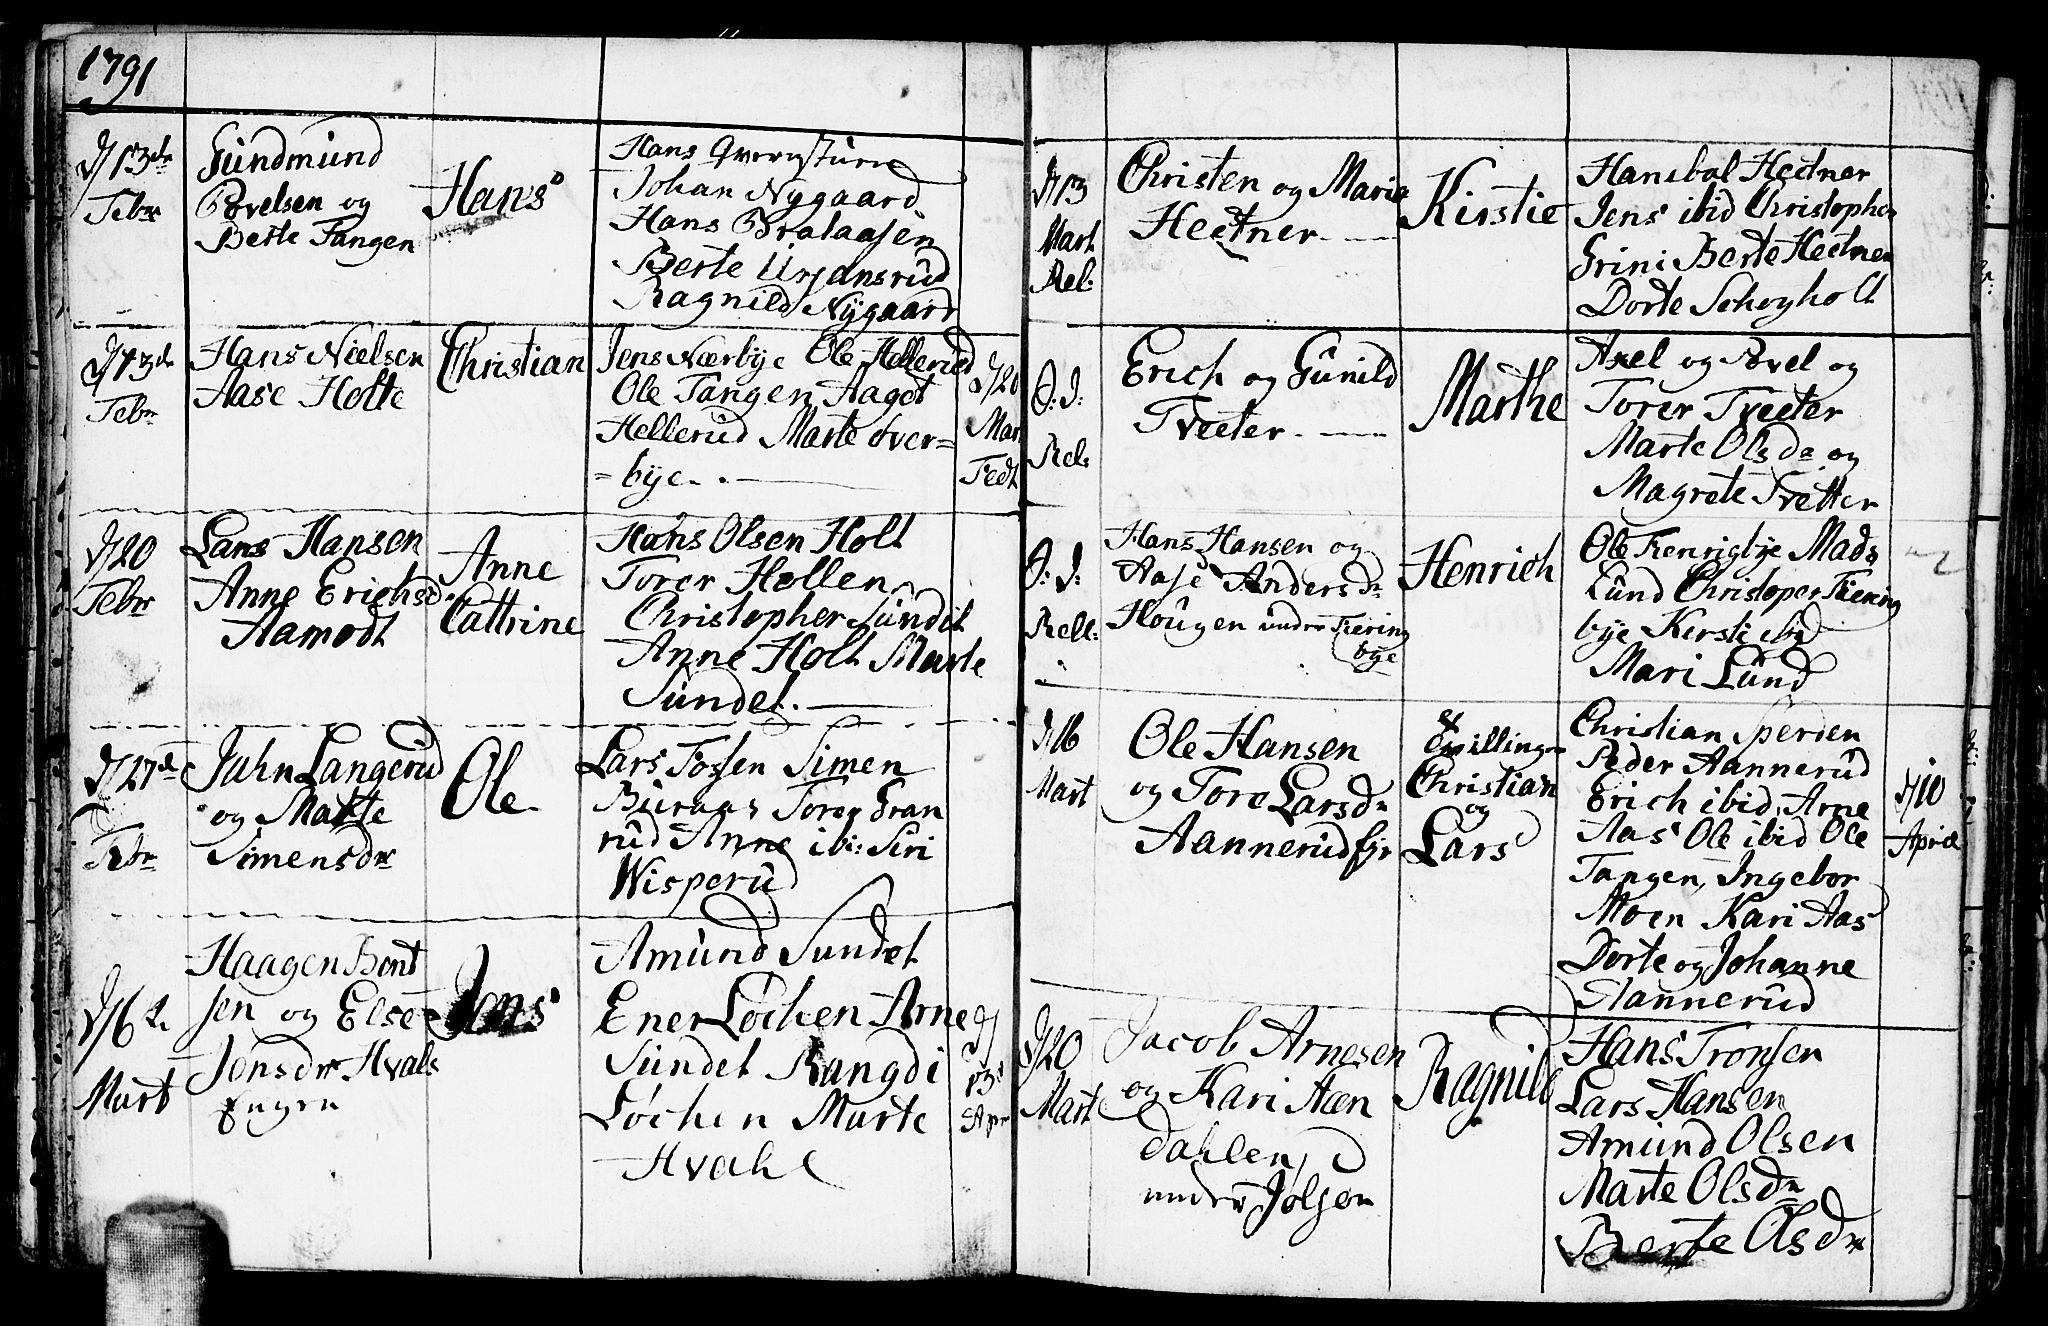 1791
d/13de
Febr
Gundmund
Povelsen og
Berte Tangen
Hans
Hans Qvernstuen
Johan Nygaard
Hans Brataasen
Berte Urjansrud
Ragnild Nygaard
d/13de
Febr
Hans Nielsen
Aase Holte
Christian
Jens Nærbye Ole Hellerud
Ole Tangen Aaget
Hellerud Marte Over=
=bye
d/20
Mar
Fedt
d/20
Febr
Lars Hansen
Anne Erichsd
Aamodt
Anne
Cattrine
Hans Olsen Holt
Torer Hollen
Christopher Sundet
Anne Holt Marte
Sundet
d/27de
Febr
Jahn Langerud
og Marte
Simensdr
Ole
Lars Fossen Simen
Buraas Torer Gran
rud Anne ibi: Siri
Wisperud
d/6te
Mart
Haagen Bent
sen og Else
Jensdr Hvals
Engen
Jens
Amund Sundet
Ener Løchen Arne
Sundet Rangdi
Løchen Marte
Hvahl
d/
13de
Apr
d/13
Mart
Rel:
Christen og Maria
Hectner
Kirstie
Hansbal Hectner
Jens ibid Christopher
Grini Berte Hectner
Dorte Schoyholt
O: d:
Rel:
Erich og Gunild
Tveeter
Marthe
Axel og Povel og
Torer Tveeter
Marte Olsdr og
Magrete Tvetter
O: d:
Rele:
Hans Hansen og
Aase Andersdr
Hougen under Kiering
bye
Henrich
Ole Kierrigbye Mads
Lund Christoper Kiering
bye Kersti ibid
Mari Lund
d/16
Mart
Ole Hansen
og Tore Larsdr
Aannerud
Tvillinger
Christian
og
Lars
Christian Sperden
Peder Aannerud
Erich ibid Arne
Aas Ole ibid Ole
Tangen, Ingebor
Moen Kari Aas
Dorte og Johanne
Aannerud
d/10
April
d/20
Mart
Jacob Arnesen
og Kari Aaen
dahlen
under Jølsen
Ragnild
Hans Tronsen
Lars Hansen
Amund Olsen
Marte Olsdr
Berte Olsdr